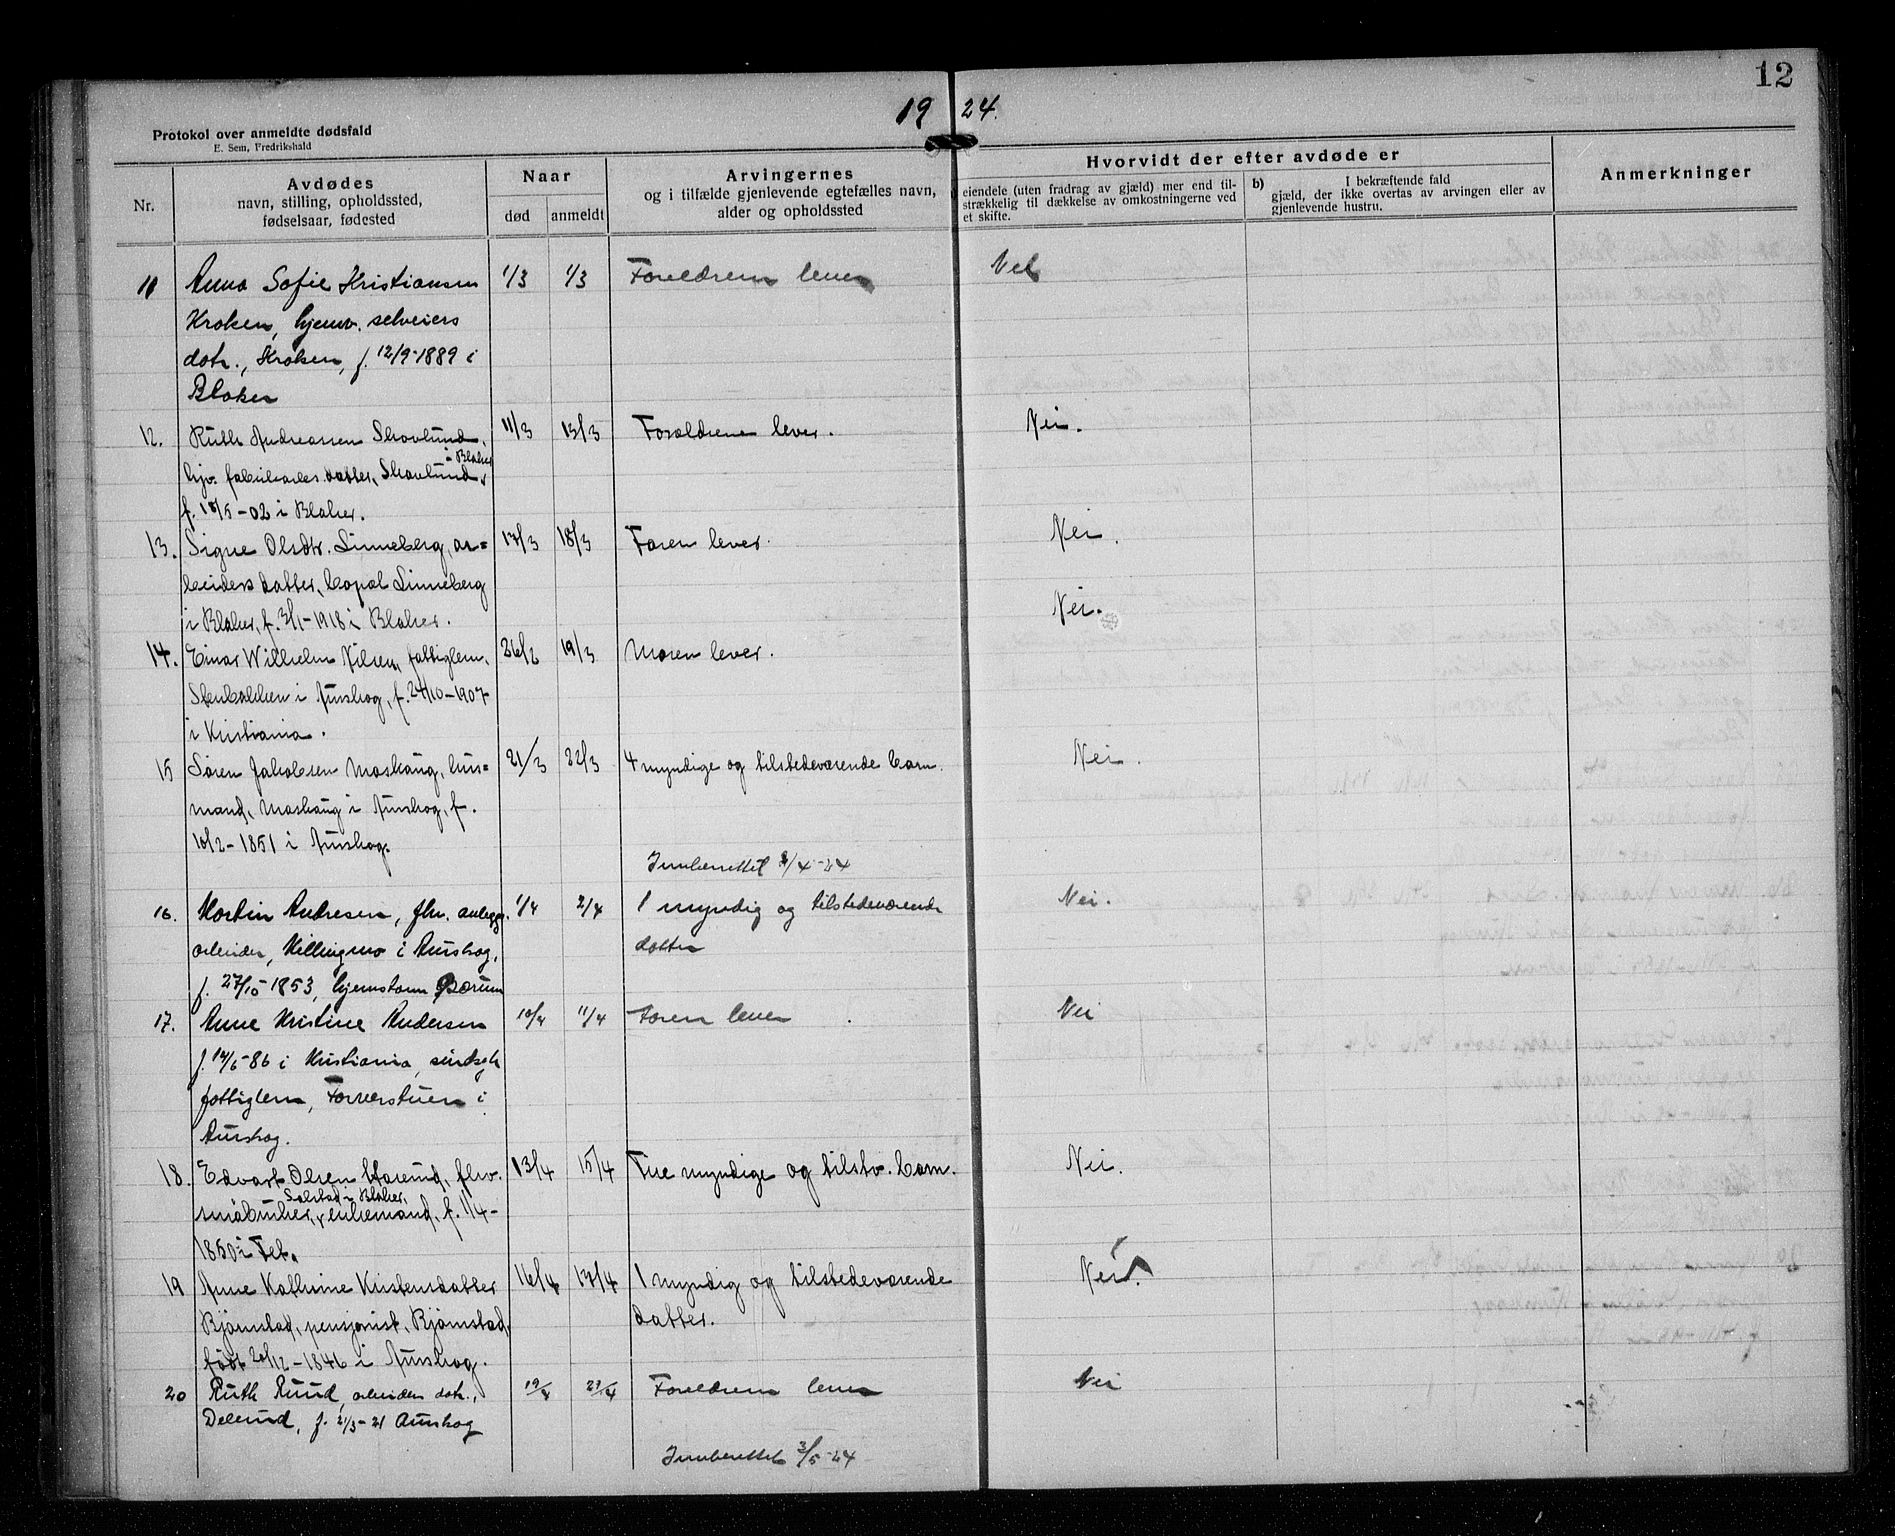 12
19 24.
Protokol over anmeldte dødsfald
E. Sem, Fredrikshald
Nr.
Avdødes
navn, stilling, opholdssted,
fødselsaar, fødested
Naar
død
anmeldt
Arvingernes
og i tilfælde gjenlevende egtefælles navn,
alder og opholdssted
Hvorvidt der efter avdøde er
eiendele (uten fradrag av gjæld) mer end til-
strækkelig til dækkelse av omkostningerne ved
et skifte.
b) I bekræftende fald
gjæld, der ikke overtas av arvingen eller av
gjenlevende hustru.
Anmerkninger
11 Anna Sofie Kristiansen 1/3 1/3 Forældrene lever Nei
Kroken, hjemv. selveiers
datr., Kroken, f. 12/9-1889 i
Blaker
12. Ruth Andreassen Skovlund, 11/3 13/3 Forældrene lever. Nei.
i Blaker
hjv. datter, Skovlund,
f. 18/5-02 i Blaker.
13. Signe Olsdtr. Linneberg, ar= 17/3 18/3 Faren lever. Nei.
beiders datter, Linneberg
i Blaker, f. 3/1-1918 i Blaker. Nei.
14. Einar Wilhelm Nilsen, fattiglem, 26/2 19/3 Moren lever.
i Aurskog, f. 24/10-1907
i Kristiania.
15 Søren Jakobsen Moshaug, hus= 21/3 22/3 4 myndige og tilstedeværende barn. Nei.
mand, Moshaug i Aurskog, f.
10/2-1851 i Aurskog.
Innberettet /4-24
16. Martin Andresen, fhv. anlegs. 1/4 2/4 1 myndig og tilstedeværende Nei.
arbeider, Killingmo i Aurskog, datter
f. 27/10-1853, hjemstavn Bærum
17. Anne Kristine Andersen 10/4 11/4 Faren lever Nei
f. 14/5-86 i Kristiania, sindssyk
fattiglem, i
Aurskog.
18. Edvart Olsen Harerud, fhv. 13/4 15/4 Tre myndige og tilstv. barn. Nei.
Solstad i Blaker,
småbruker, enkemand, f. 1/4-
1850 i Fet.
19 Anne Kathrine Kristensdatter 16/4 17/4 1 myndig og tilstedeværende Nei.
Bjørnstad, pensjonist, Bjørnstad, datter.
født 20/12-1846 i Aurskog.
20 Ruth Ruud, arbeiders datr., 19/4 27/4 Forældrene lever Nei
Delerud, f. 21/3-21 Aurskog
Innberettet 3/5-24